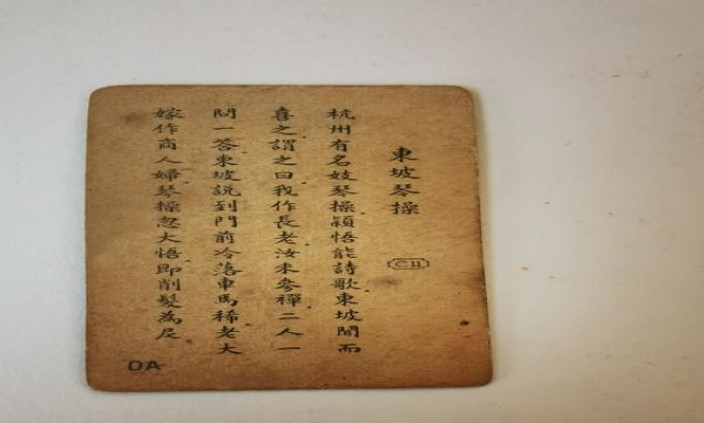 東坡琴操
C11
杭州有名妓琴操穎悟能詩歌東坡聞而
喜之謂之曰我作長老汝來參禪二人一
問一答東坡説到門前冷落車馬稀老大
嫁作商人婦琴操忽大悟即削髮為尼
OA